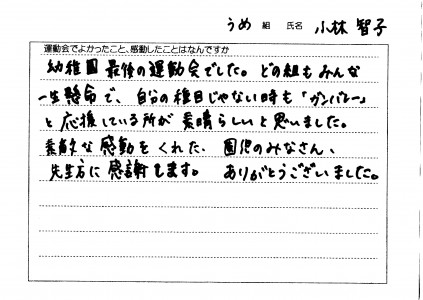 うめ 組 氏名 小林 智子
運動会でよかったこと、感動したことはなんですか
幼稚園最後の運動会でした。どの組もみんな
一生懸命で、自分の種目じゃない時も「ガンバレー」
と応援している所が素晴らしいと思いました。
素敵な感動をくれた、園児のみなさん、
先生方に感謝します。ありがとうございました。